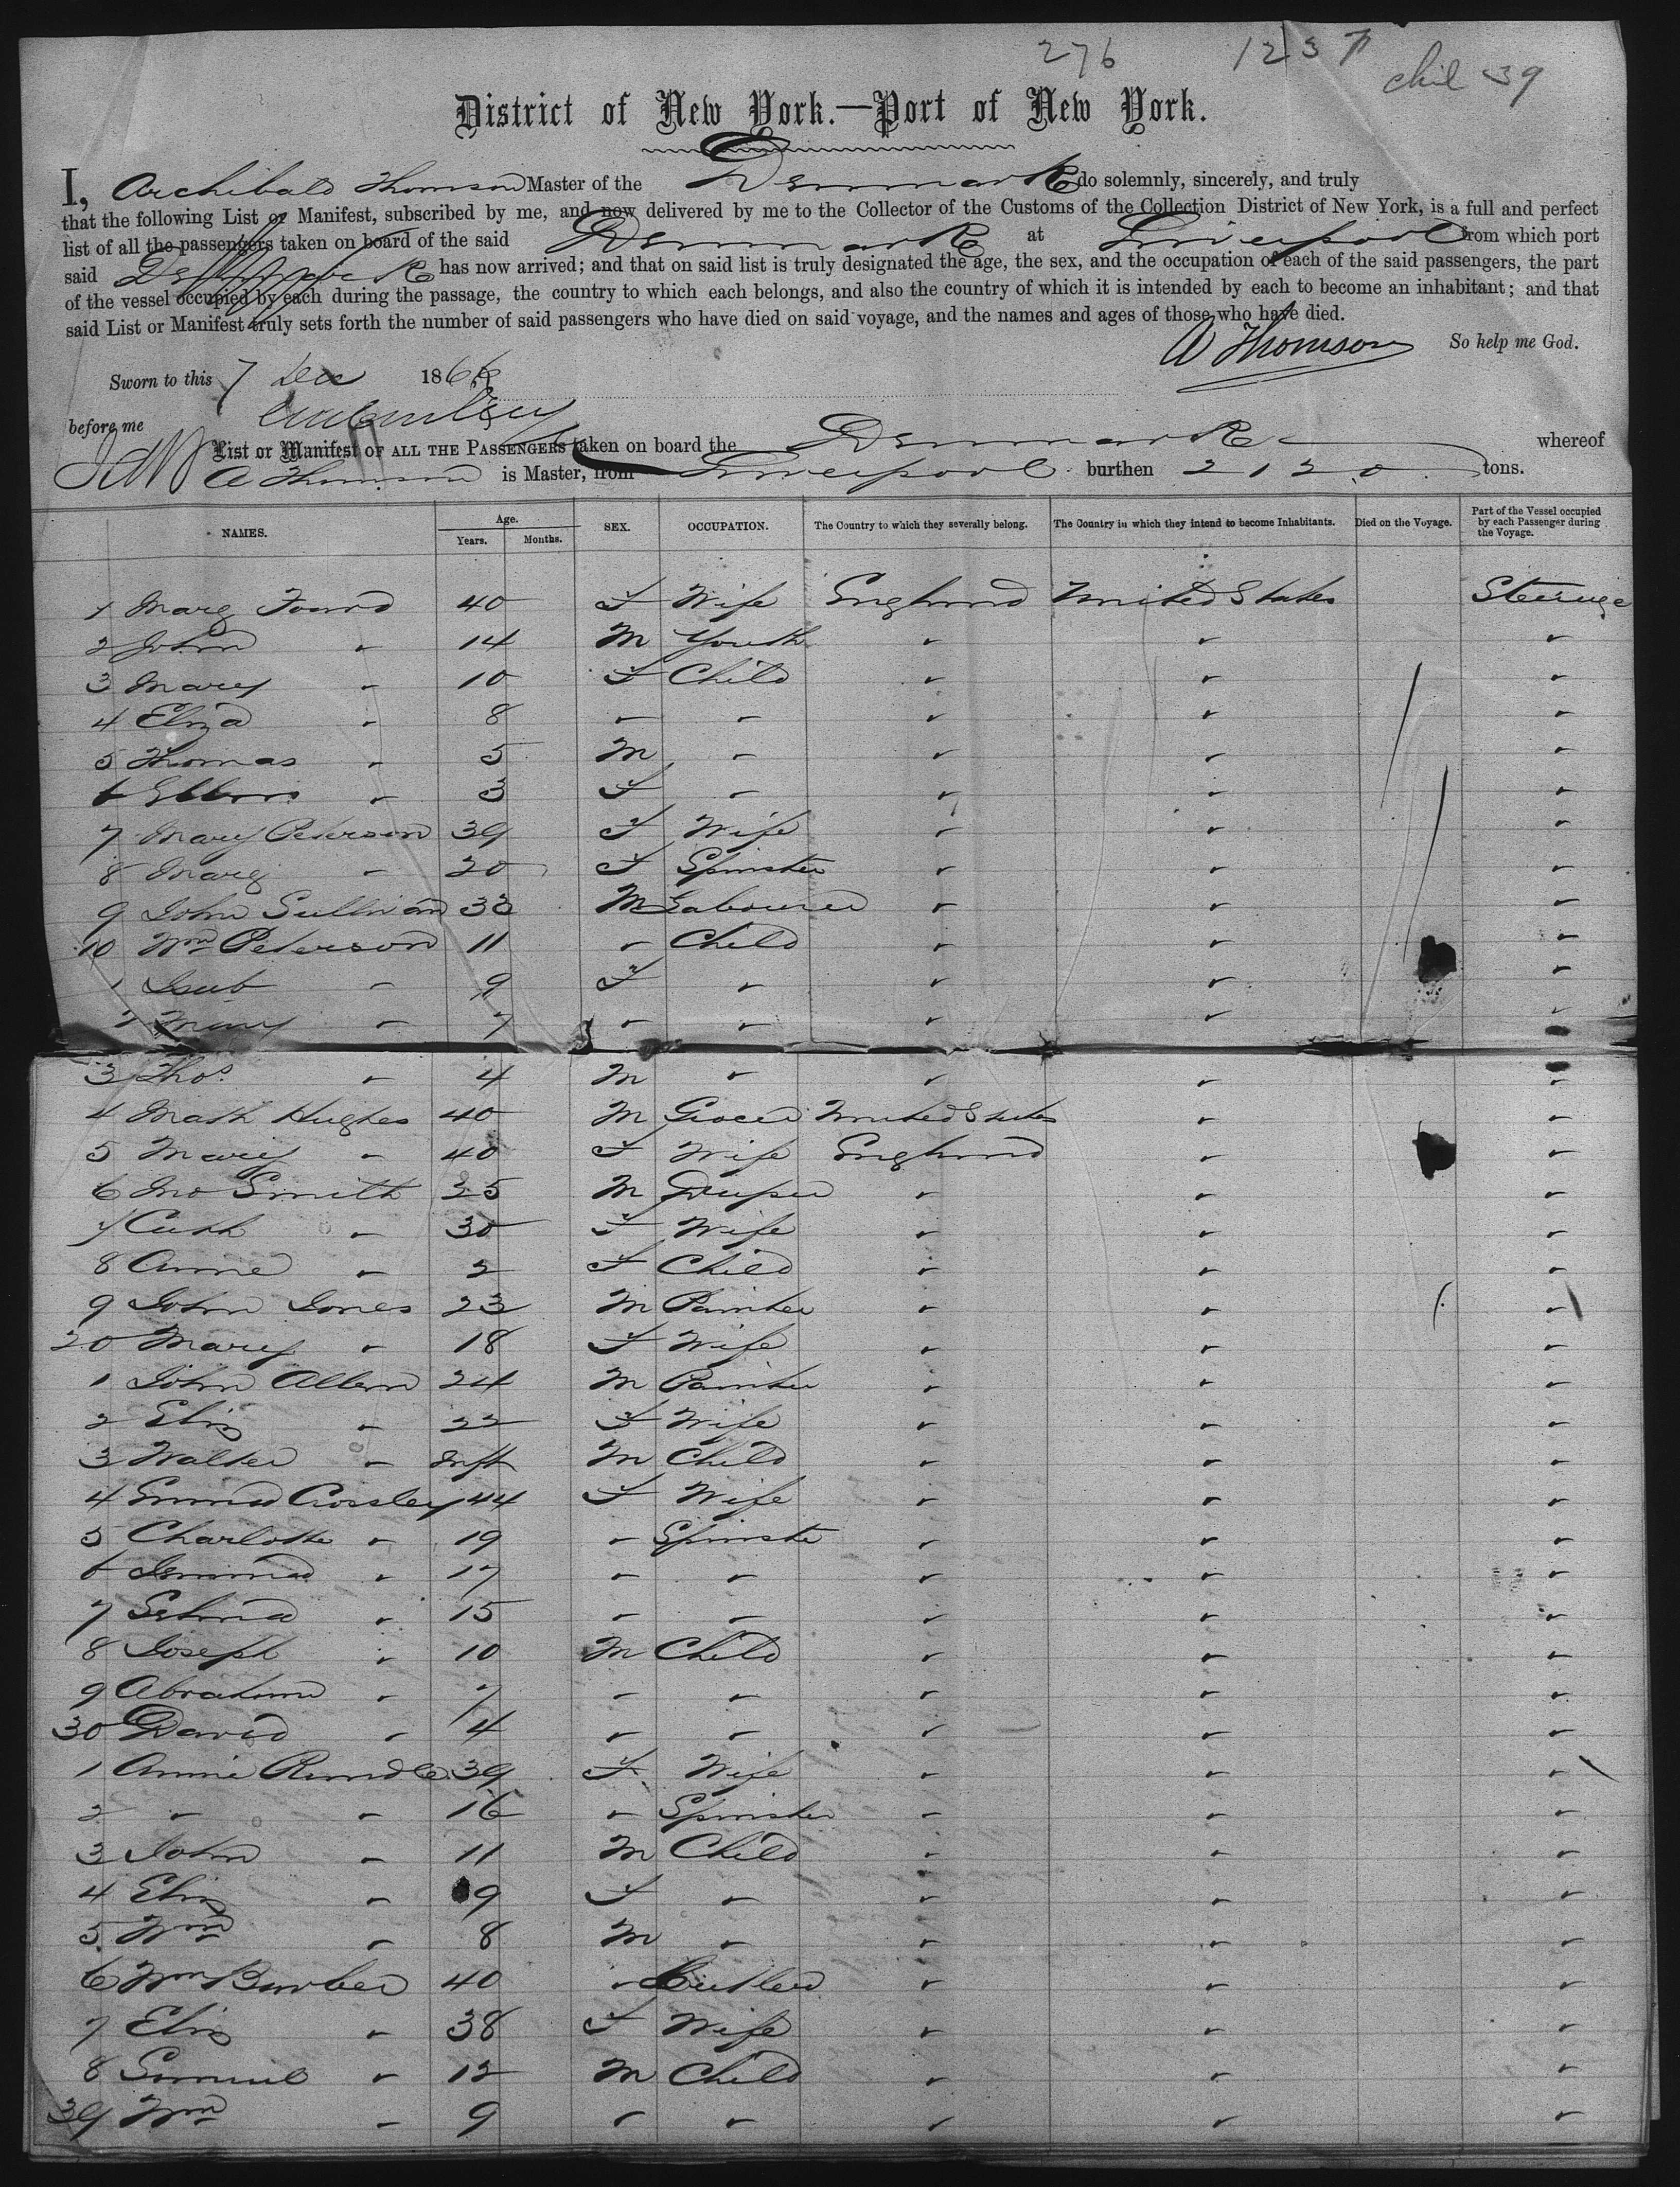 276 1237
chil 39
District of New York.—Port of New York.
I, Archibald Thomson Master of the Denmark do solemnly, sincerely, and truly
that the following List or Manifest, subscribed by me, and now delivered by me to the Collector of the Customs of the Collection District of New York, is a full and perfect
list of all the passengers taken on board of the said Denmark at Liverpool from which port
said Denmark has now arrived; and that on said list is truly designated the age, the sex, and the occupation of each of the said passengers, the part
of the vessel occupied by each during the passage, the country to which each belongs, and also the country of which it is intended by each to become an inhabitant; and that
said List or Manifest truly sets forth the number of said passengers who have died on said voyage, and the names and ages of those who have died.
A Thomson So help me God.
Sworn to this 7 Dec 1866
before me
List or Manifest OF ALL THE PASSENGERS taken on board the Denmark whereof
A Thomson is Master, from Liverpool burthen 2120 tons.
NAMES. Age. Years. Months. SEX. OCCUPATION. The Country to which they severally belong. The Country in which they intend to become Inhabitants. Died on the Voyage. Part of the Vessel occupied by each Passenger during the Voyage.
1 Marg Foard 40 F Wife England United States Steerage
2 John " 14 M Youth " " "
3 Mary " 10 F Child " " "
4 Eliza " 8 " " " " "
5 Thomas " 5 M " " " "
6 Ellen " 3 F " " " "
7 Mary Peterson 39 F Wife " " "
8 Marg " 20 F Spinster " " "
9 John Sullivan 33 M Labourer " " "
10 Wm Peterson 11 " Child " " "
1 Isab " 9 F " " " "
2 Mary " 7 " " " " "
3 Thos. " 4 M " " " "
4 Math Hughes 40 M Grocer United States " "
5 Mary " 40 F Wife England " "
6 Jno Smith 25 M Draper " " "
7 Cath " 30 F Wife " " "
8 Anne " 2 F Child " " "
9 John Jones 23 M Painter " " "
20 Mary " 18 F Wife " " "
1 John Allen 24 M Painter " " "
2 Eliz " 22 F Wife " " "
3 Walter " Inft M Child " " "
4 Emma Crossley 44 F Wife " " "
5 Charlotte " 19 " Spinster " " "
6 Jemima " 17 " " " " "
7 Selina " 15 " " " " "
8 Joseph " 10 M Child " " "
9 Abraham " 7 " " " " "
30 David " 4 " " " " "
1 Annie Rundle 39 F Wife " " "
2 " " 16 " Spinster " " "
3 John " 11 M Child " " "
4 Eliz " 9 F " " " "
5 Wm " 8 M " " " "
6 Wm Barber 40 " Cutler " " "
7 Eliz " 38 F Wife " " "
8 Samuel " 12 M Child " " "
39 Wm " 9 " " " " "